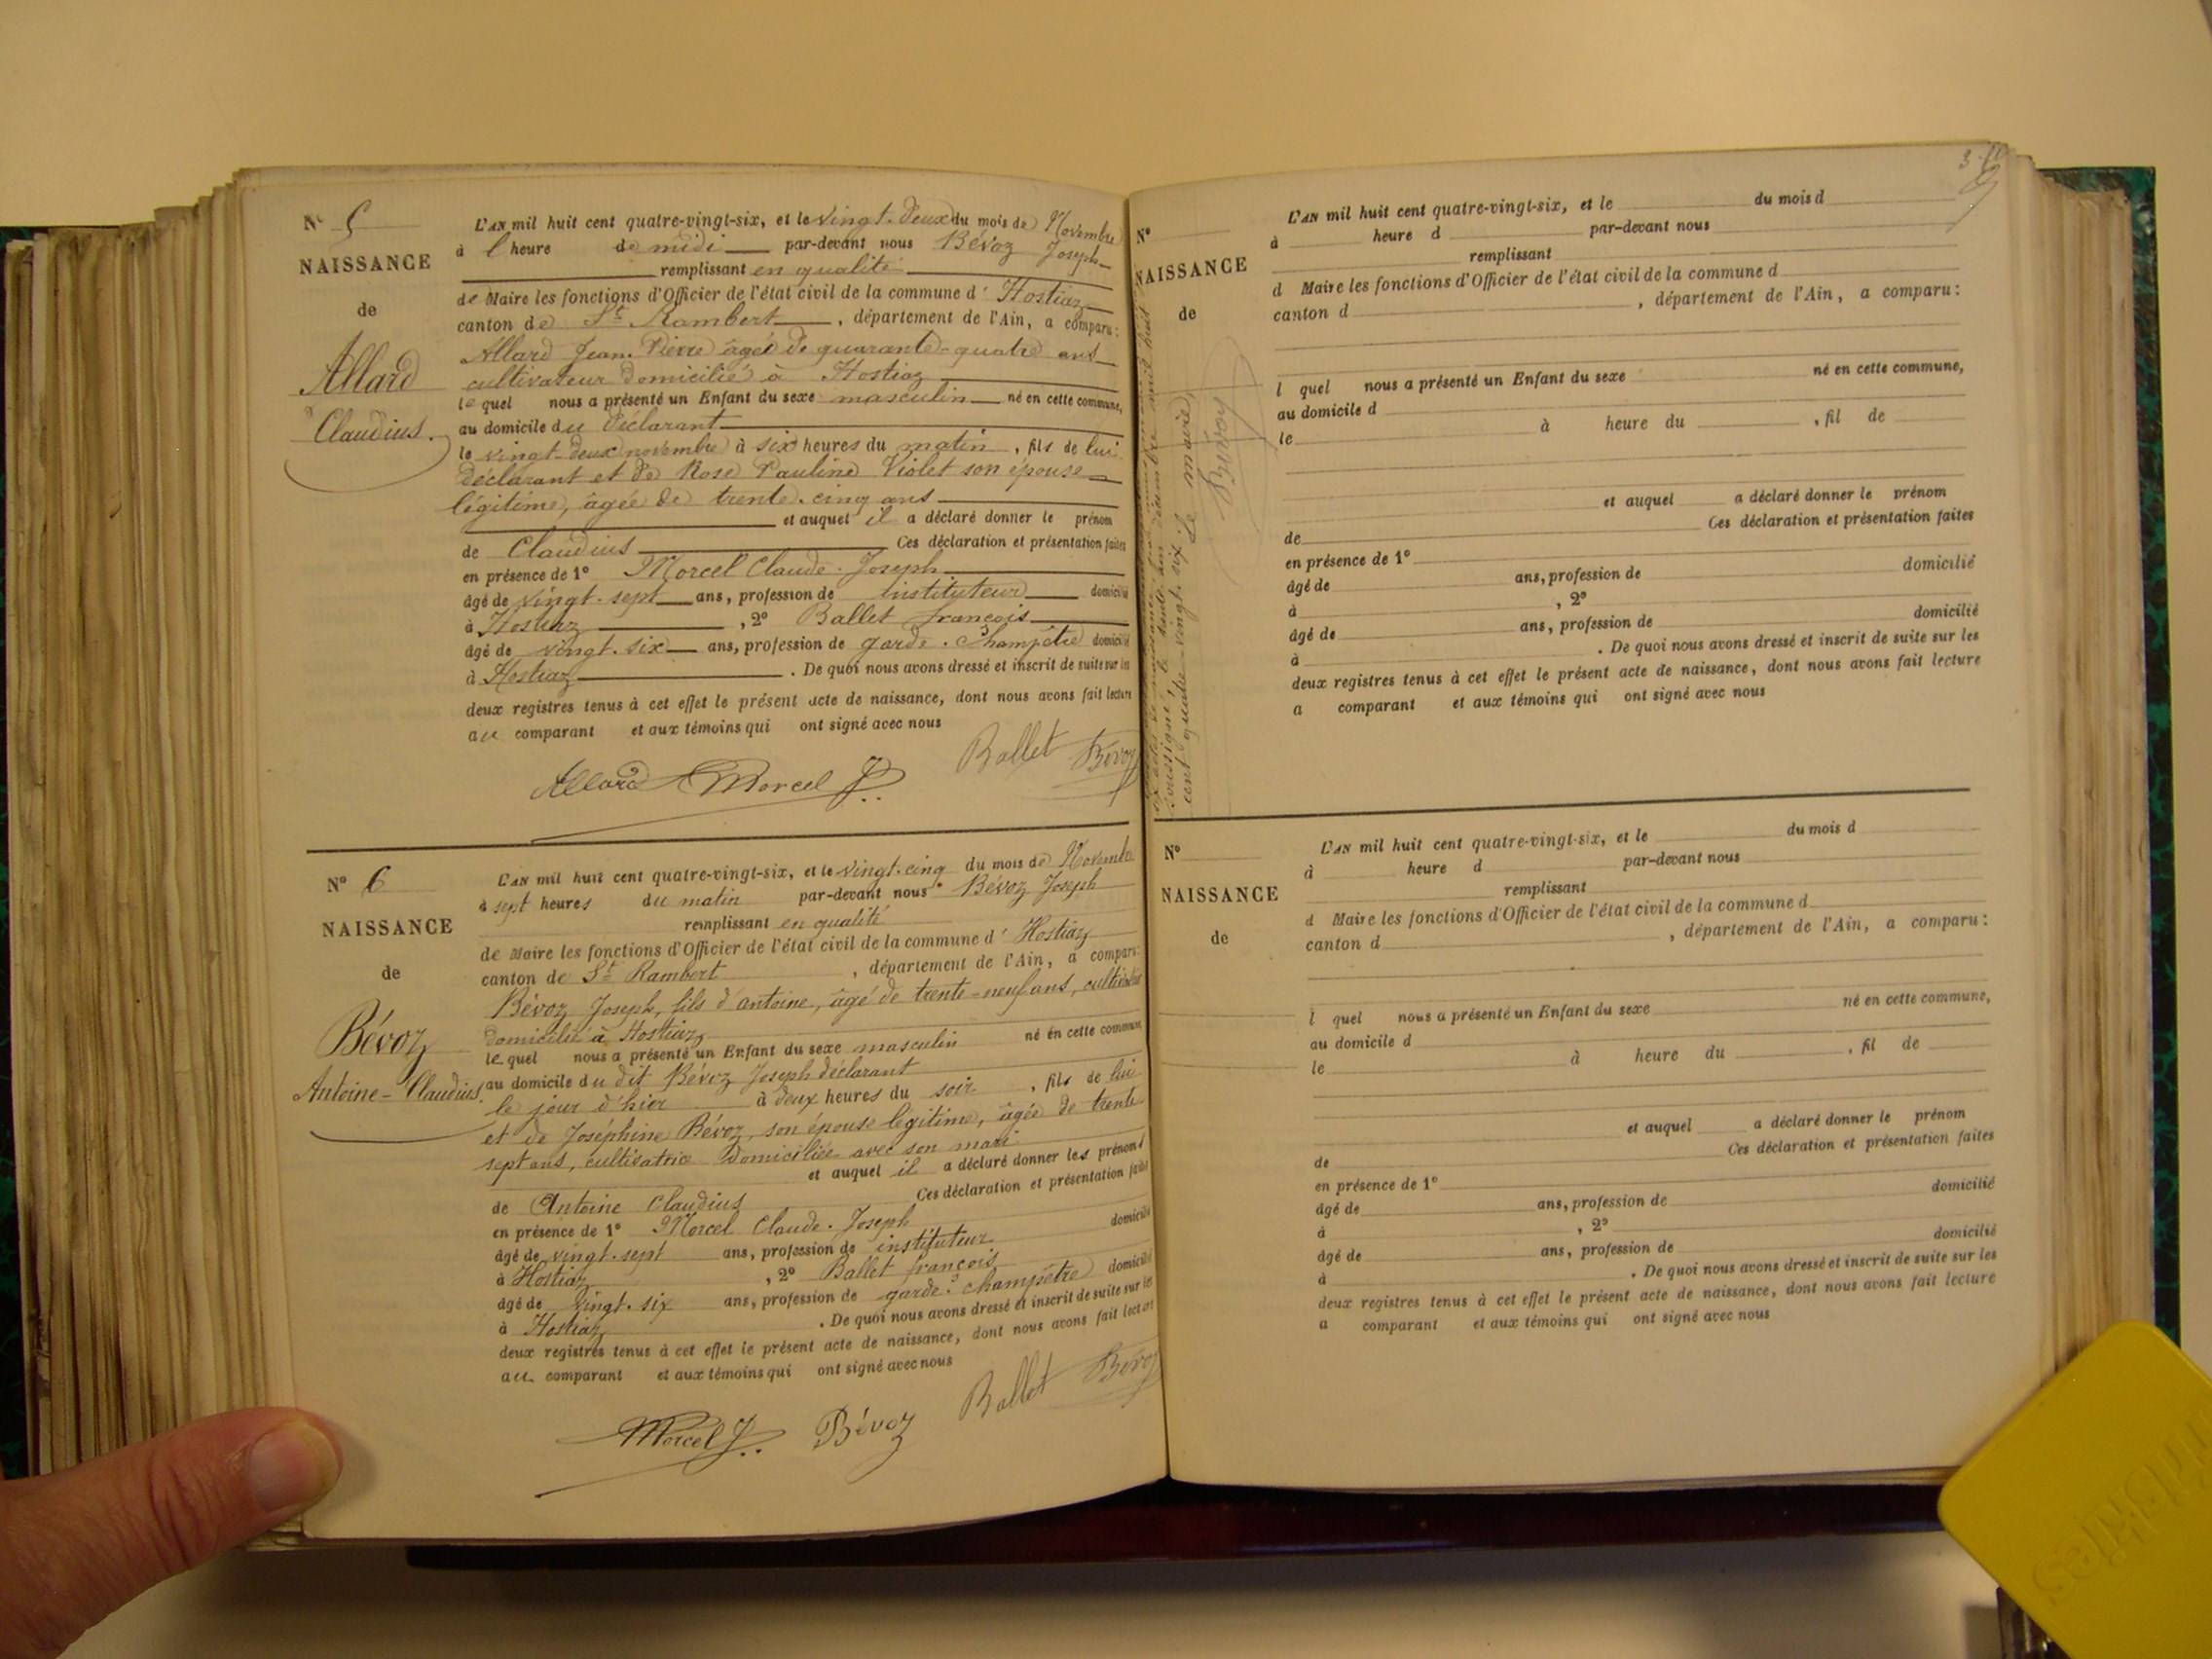 N° 5
NAISSANCE
de
Allard
Claudius.
L'AN mil huit cent quatre-vingt-six, et le vingt-deux du mois de Novembre
à l'heure de midi par-devant nous Bévoz Joseph
remplissant en qualité
de Maire les fonctions d'Officier de l'état civil de la commune d'Hostiaz
canton de St Rambert, département de l'Ain, a comparu:
Allard Jean-Pierre âgé de quarante-quatre ans
cultivateur domicilié à Hostiaz
lequel nous a présenté un Enfant du sexe masculin né en cette commune,
au domicile du déclarant
le vingt-deux novembre à six heures du matin, fils de lui
déclarant et de Rose Pauline Violet son épouse
légitime, âgée de trente-cinq ans
et auquel il a déclaré donner le prénom
de Claudius Ces déclaration et présentation faites
en présence de 1° Morcel Claude-Joseph
âgé de vingt-sept ans, profession de instituteur domicilié
à Hostiaz, 2° Ballet françois
âgé de vingt-six ans, profession de garde-champêtre domicilié
à Hostiaz. De quoi nous avons dressé et inscrit de suite sur les
deux registres tenus à cet effet le présent acte de naissance, dont nous avons fait lecture
au comparant et aux témoins qui ont signé avec nous
Allard Morcel J Ballet Bévoz
N° 6
NAISSANCE
de
Bévoz
Antoine-Claudius.
L'AN mil huit cent quatre-vingt-six, et le vingt-cinq du mois de Novembre
à sept heures du matin par-devant nous Bévoz Joseph
remplissant en qualité
de Maire les fonctions d'Officier de l'état civil de la commune d'Hostiaz
canton de St Rambert, département de l'Ain, a comparu:
Bévoz Joseph, fils d'antoine, âgé de trente-neuf ans, cultivateur
domicilié à Hostiaz
lequel nous a présenté un Enfant du sexe masculin né en cette commune
au domicile du dit Bévoz Joseph déclarant
le jour d'hier à deux heures du soir, fils de lui
et de Joséphine Bévoz, son épouse légitime, âgée de trente
sept ans, cultivatrice domiciliée avec son mari
et auquel il a déclaré donner les prénoms
de Antoine Claudius Ces déclaration et présentation faites
en présence de 1° Morcel Claude-Joseph
âgé de vingt-sept ans, profession de instituteur domicilié
à Hostiaz, 2° Ballet françois
âgé de vingt-six ans, profession de garde-champêtre domicilié
à Hostiaz. De quoi nous avons dressé et inscrit de suite sur les
deux registres tenus à cet effet le présent acte de naissance, dont nous avons fait lecture
au comparant et aux témoins qui ont signé avec nous
Morcel J Bévoz Ballet Bévoz
soussigné le
cent quatre-vingt-six. Le maire,
Bévoz
N°
NAISSANCE
de
L'AN mil huit cent quatre-vingt-six, et le du mois d
à heure d par-devant nous
remplissant
d Maire les fonctions d'Officier de l'état civil de la commune d
canton d , département de l'Ain, a comparu:
l quel nous a présenté un Enfant du sexe né en cette commune,
au domicile d
le à heure du , fil de
et auquel a déclaré donner le prénom
de Ces déclaration et présentation faites
en présence de 1°
âgé de ans, profession de domicilié
à , 2°
âgé de ans, profession de domicilié
à . De quoi nous avons dressé et inscrit de suite sur les
deux registres tenus à cet effet le présent acte de naissance, dont nous avons fait lecture
a comparant et aux témoins qui ont signé avec nous
N°
NAISSANCE
de
L'AN mil huit cent quatre-vingt-six, et le du mois d
à heure d par-devant nous
remplissant
d Maire les fonctions d'Officier de l'état civil de la commune d
canton d , département de l'Ain, a comparu:
l quel nous a présenté un Enfant du sexe né en cette commune,
au domicile d
le à heure du , fil de
et auquel a déclaré donner le prénom
de Ces déclaration et présentation faites
en présence de 1°
âgé de ans, profession de domicilié
à , 2°
âgé de ans, profession de domicilié
à . De quoi nous avons dressé et inscrit de suite sur les
deux registres tenus à cet effet le présent acte de naissance, dont nous avons fait lecture
a comparant et aux témoins qui ont signé avec nous